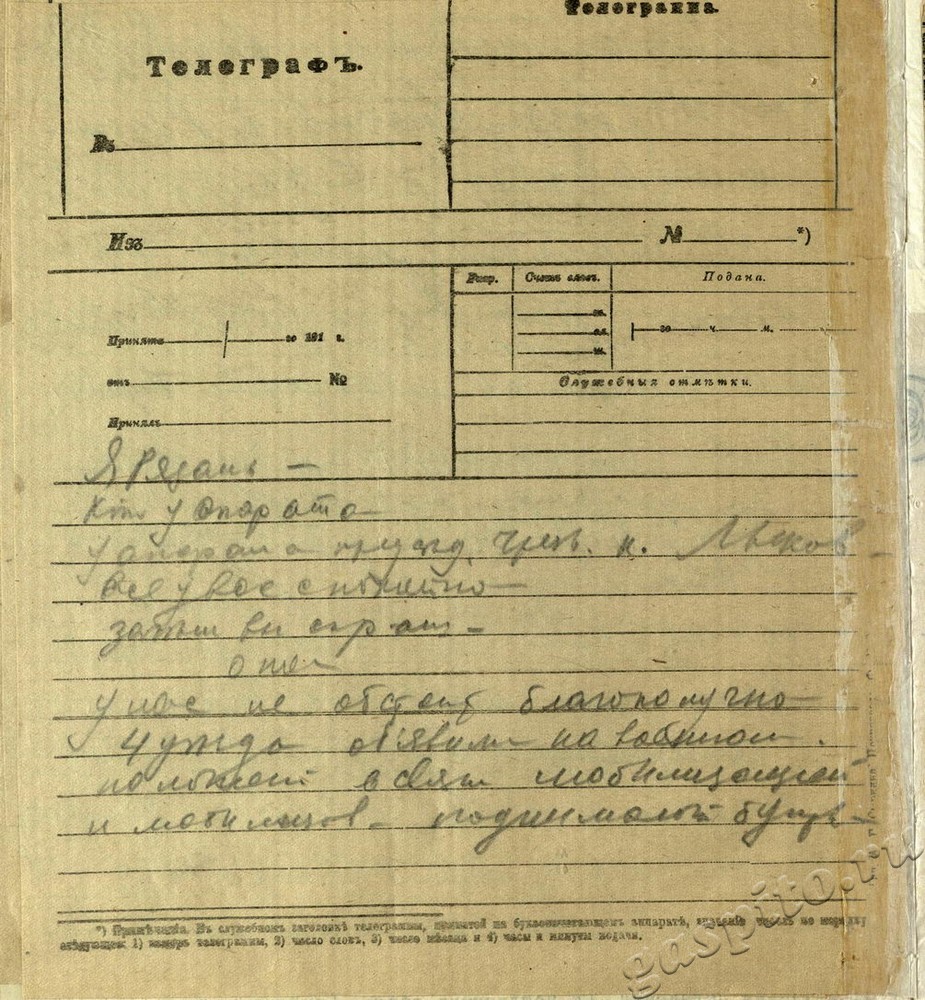 Телеграмма.
Телеграфъ.
Въ
Изъ № *)
Разр. Счетъ словъ. Подана.
Принята го 191 г.
го ч. м.
отъ №
Служебныя отмѣтки.
Принялъ
Я Рязань —
Кто у апарата
у апарата председ. чрез. к. Львков
все у вас спокойно
зачем вы спраш —
о том
у нас не обстоит благополучно
4 уезда об'явили на военном.
положен в связи мобилизацией
и мобилизов — поднимают бунт —
*) Примѣчанія. Въ служебномъ заголовкѣ телеграммы, принятой на буквопечатающемъ аппаратѣ, значеніе чиселъ по порядку
слѣдующее: 1) номеръ телеграммы, 2) число словъ, 3) число мѣсяца и 4) часы и минуты подачи.
gaspito.ru